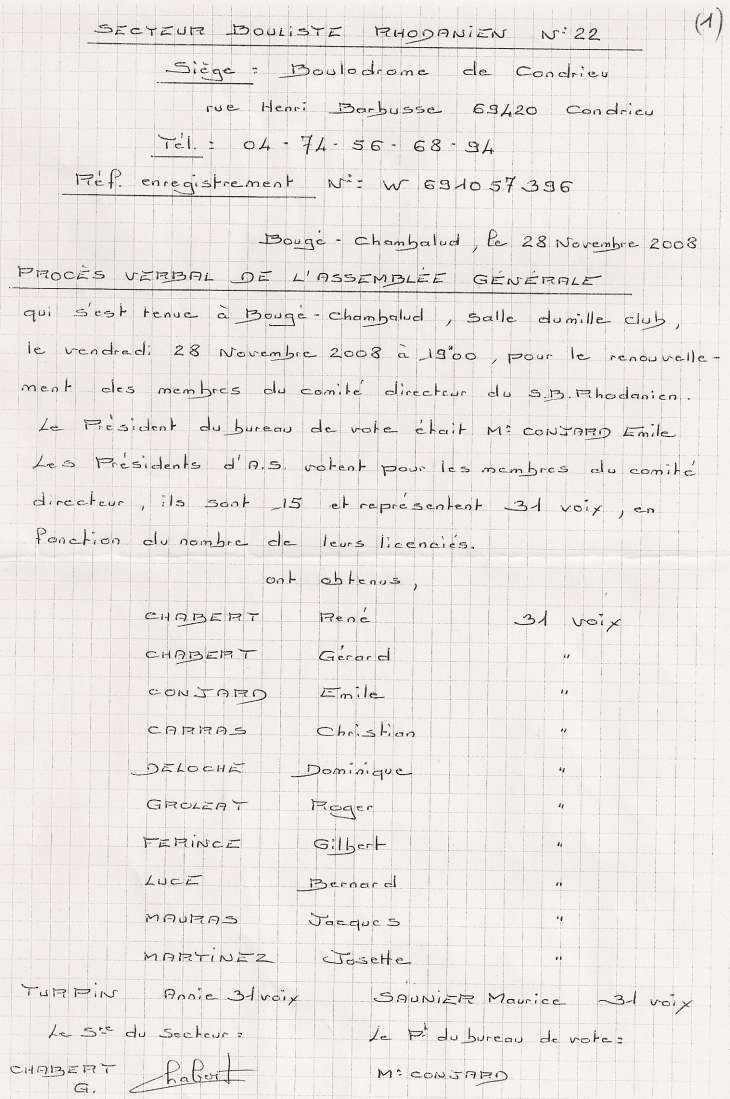 (1)
SECTEUR BOULISTE RHODANIEN N°: 22
Siège : Boulodrome de Condrieu
rue Henri Barbusse 69420 Condrieu
Tél. : 04 - 74 - 56 - 68 - 94
Réf. enregistrement N°: W 691057396
Bougé - Chambalud, le 28 Novembre 2008
PROCÈS VERBAL DE L'ASSEMBLÉE GÉNÉRALE
qui s'est tenue à Bougé-Chambalud, salle du mille club,
le vendredi 28 Novembre 2008 à 19h00, pour le renouvelle-
ment des membres du comité directeur du S.B. Rhodanien.
Le Président du bureau de vote était Mr CONJARD Emile
Les Présidents d'A.S. votent pour les membres du comité
directeur, ils sont 15 et représentent 31 voix, en
fonction du nombre de leurs licenciés.
ont obtenus,
CHABERT René 31 voix
CHABERT Gérard "
CONJARD Emile "
CARRAS Christian "
DELOCHE Dominique "
GROLEAT Roger "
FERINCE Gilbert "
LUCE Bernard "
MAURAS Jacques "
MARTINEZ Josette "
TURPIN Annie 31 voix SAUNIER Maurice 31 voix
Le Stre du Secteur : Le Pt du bureau de vote :
CHABERT G. Chabert Mr CONJARD